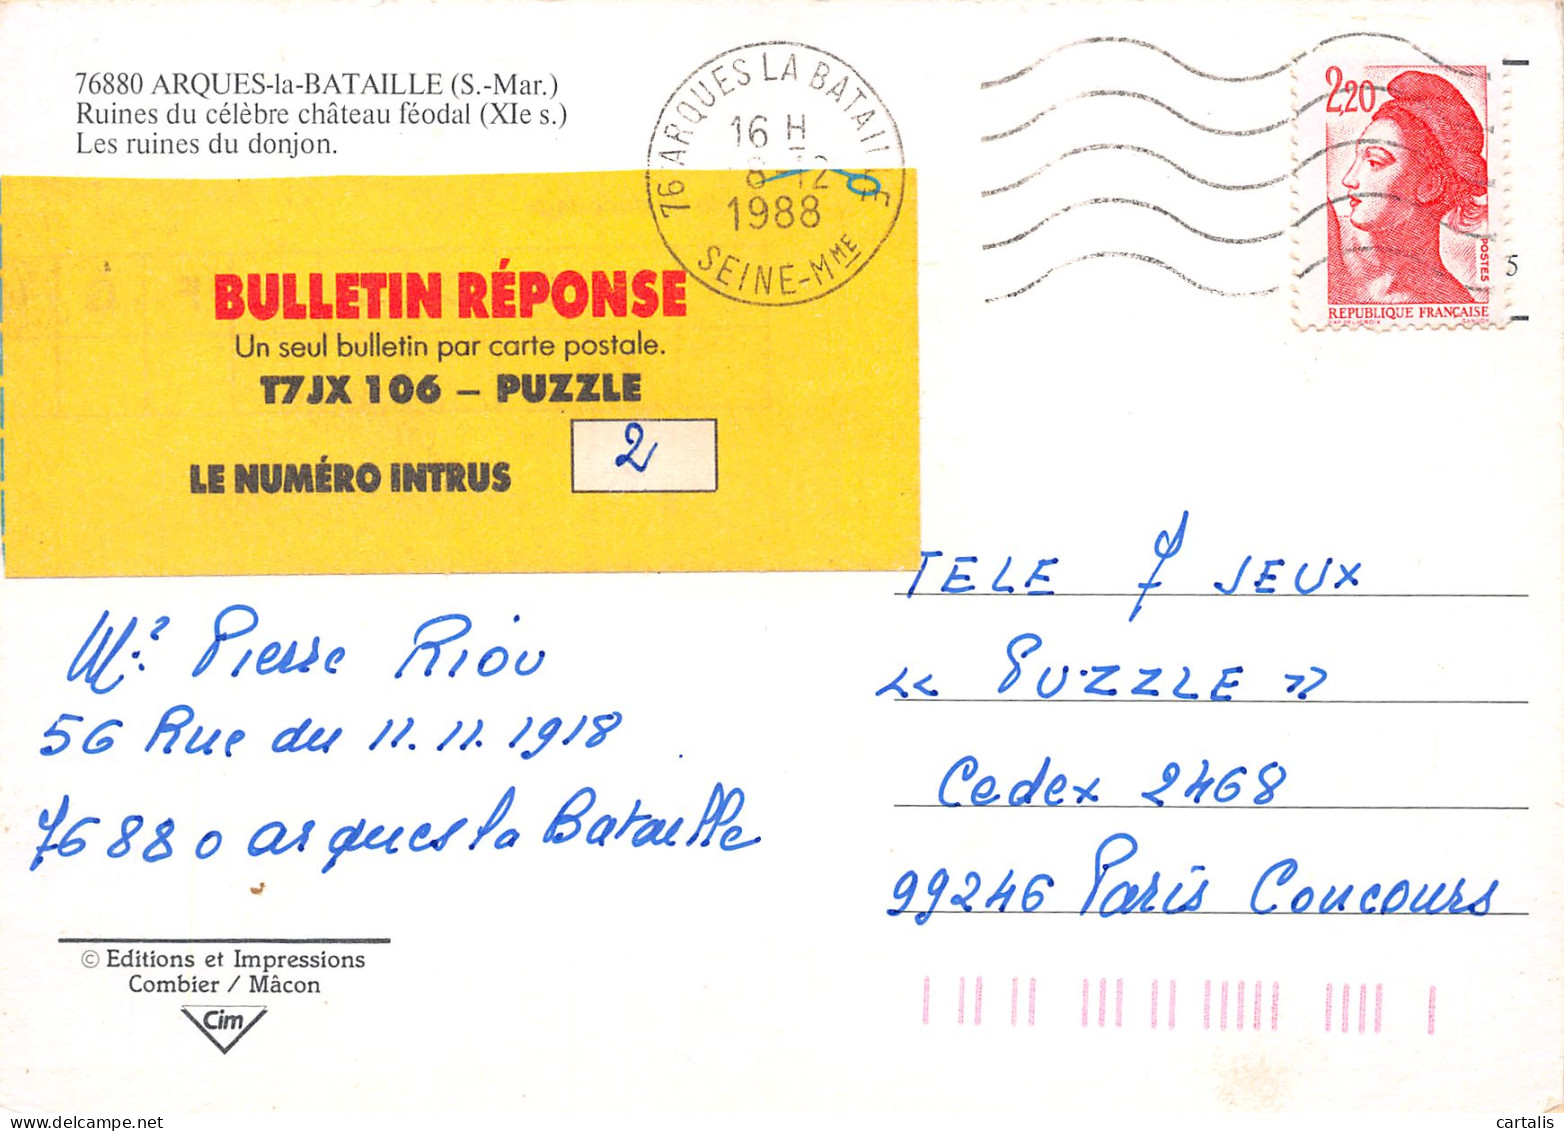 76880 ARQUES-la-BATAILLE (S.-Mar.)
Ruines du célèbre château féodal (XIe s.)
Les ruines du donjon.
76 ARQUES LA BATAILLE
16 H
8-12
1988
SEINE-Mme
2,20
POSTES
RÉPUBLIQUE FRANÇAISE
5
BULLETIN RÉPONSE
Un seul bulletin par carte postale.
T7JX 106 – PUZZLE
LE NUMÉRO INTRUS
2
TELE 7 JEUX
« PUZZLE »
Cedex 2468
99246 Paris Concours
Mr Pierre Riou
56 Rue du 11.11.1918
76880 arques la Bataille
© Editions et Impressions
Combier / Mâcon
Cim
delcampe.net
cartalis